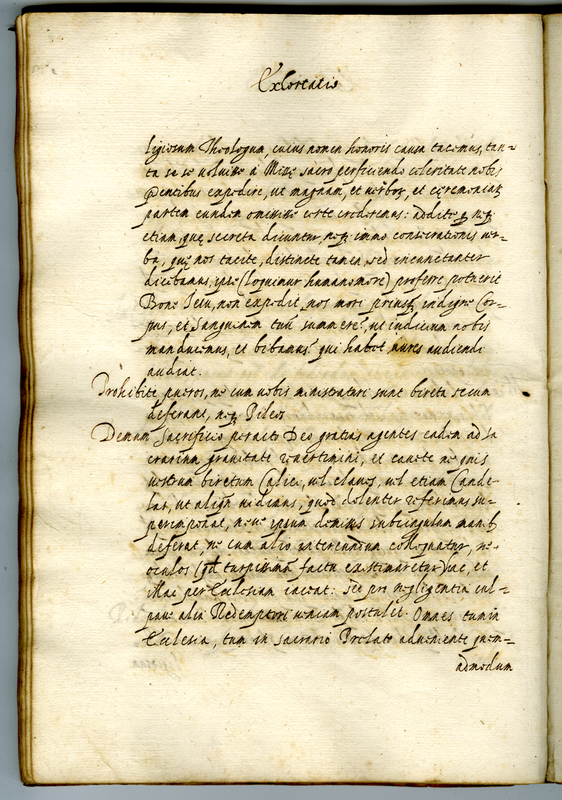 Exhortatio
ligiosum Theologum, cuius nomen honoris causa tacemus, tan-
ta se se voluisse à Missę sacro perficiendo celeritate nobis
petentibus expedire, ut magnam, et verborꝝ, et cęremoniarꝝ
partem eundem omisisse certe crederemus: addite
etiam, quę secreta dicuntur, neqꝫ immo consecrationis ver-
ba, quę nos tacite, distincte tamen, sed incunctanter
dicebamus, ipse (loquimur humano more) proferre potuerit
Bone Jesu, non expedit nos mori priusqꝫ indigne Cor-
pus, et Sanguinem tuū summere, ut iudicium nobis
manducemus, et bibamus? qui habet aures audiendi
audiat.
Prohibite pueros, ne cum vobis ministraturi sunt bireta secum
deferant, neqꝫ Pileos
Demum Sacrificio peracto Deo gratias agentes eadem ad sa
crarium gravitate revertimini, et cavete ne quis
vestrum biretum Calici, vel claves, vel etiam Cande-
las, ut aliqñ vidimus, quod dolenter referimus su-
perimponat, neve ipsum demissis subcingulum manibꝫ
deferat, ne cum alio intereundum colloquatur, ne-
oculos (qd turpissimū factu existimaretur) hac, et
illac per Ecclesiam iaceat: sed pro negligentia cul-
pave alia Redemptori veniam postulet. Omnes tum in
Ecclesia, tum in sacrario Prelato adveniente quem-
admodum